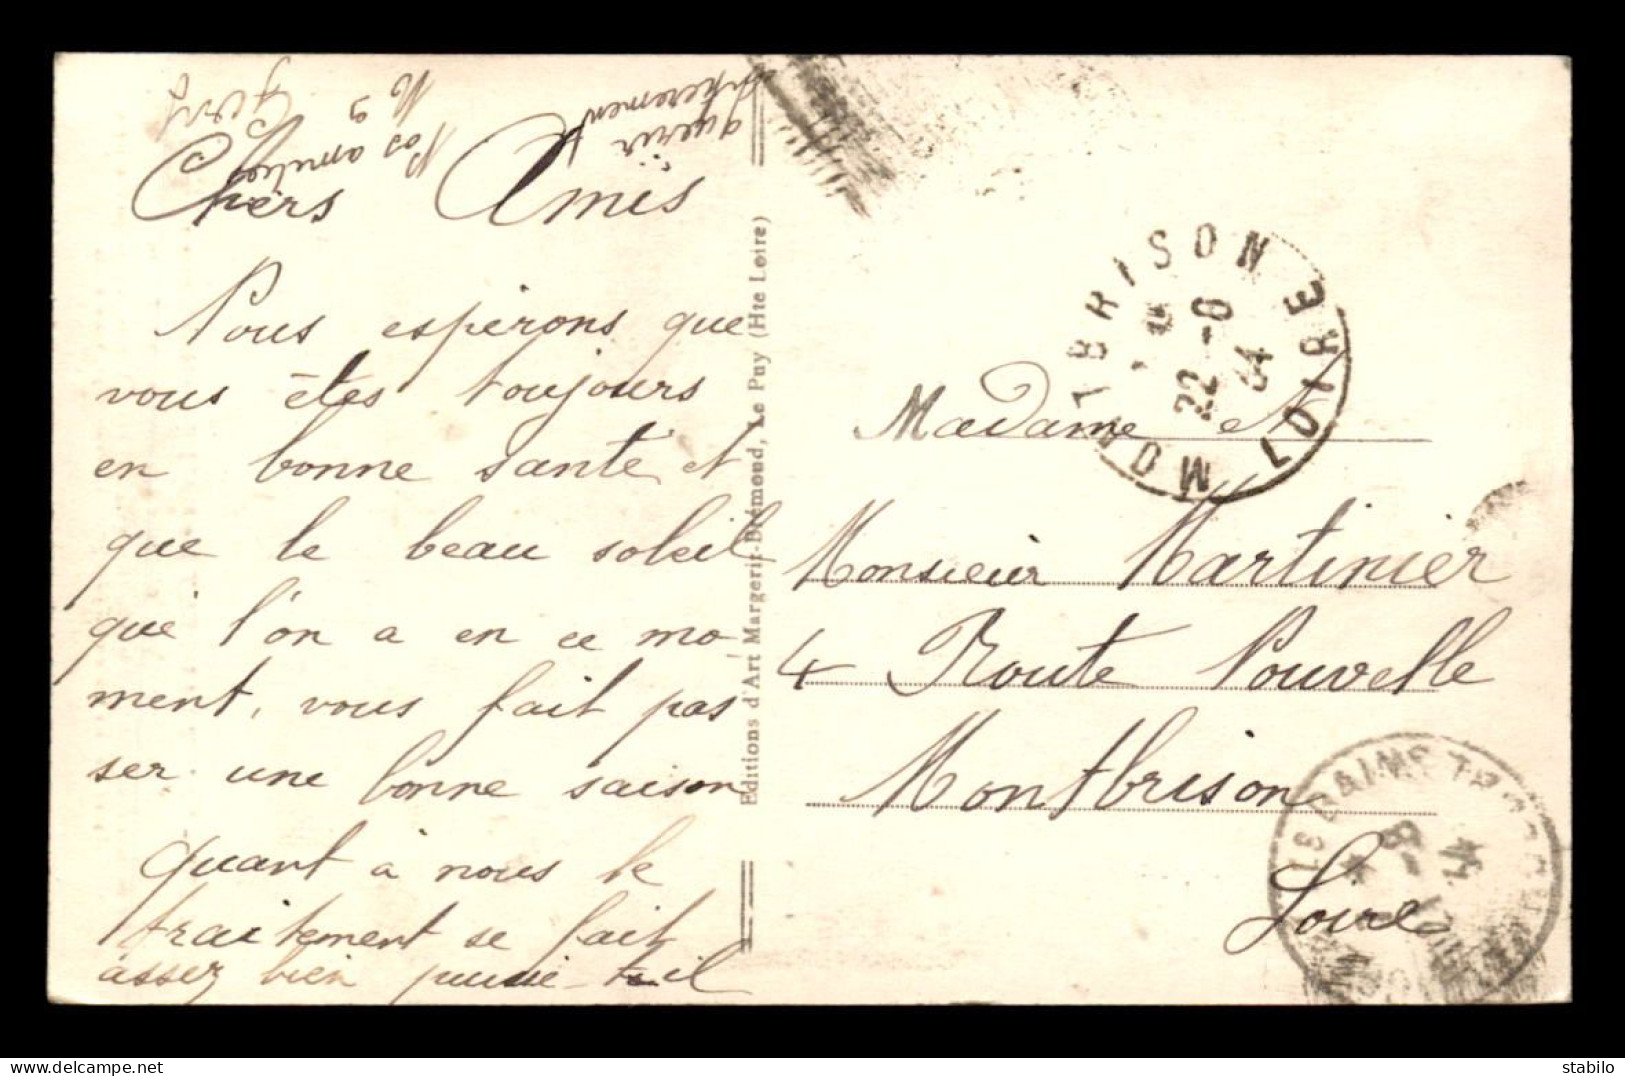 Chers Amis
Nous esperons que
vous êtes toujours
en bonne santé et
que le beau soleil
que l'on a en ce mo-
ment, vous fait pas
ser une bonne saison
quant à nous le
traitement se fait
assez bien puisse-t-il
guérir
Nos amitiés
Editions d'Art Margerit-Brémond, Le Puy (Hte Loire)
MONTBRISON
LOIRE
22 -8
34
Madame et
Monsieur Martinier
4 Route Nouvelle
Montbrison
Loire
delcampe.net
stabilo